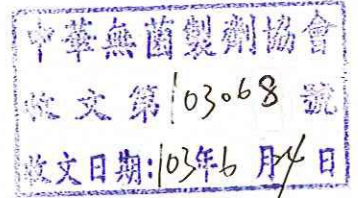 中華無菌製劑協會
收文第103068號
收文日期:103年6月24日